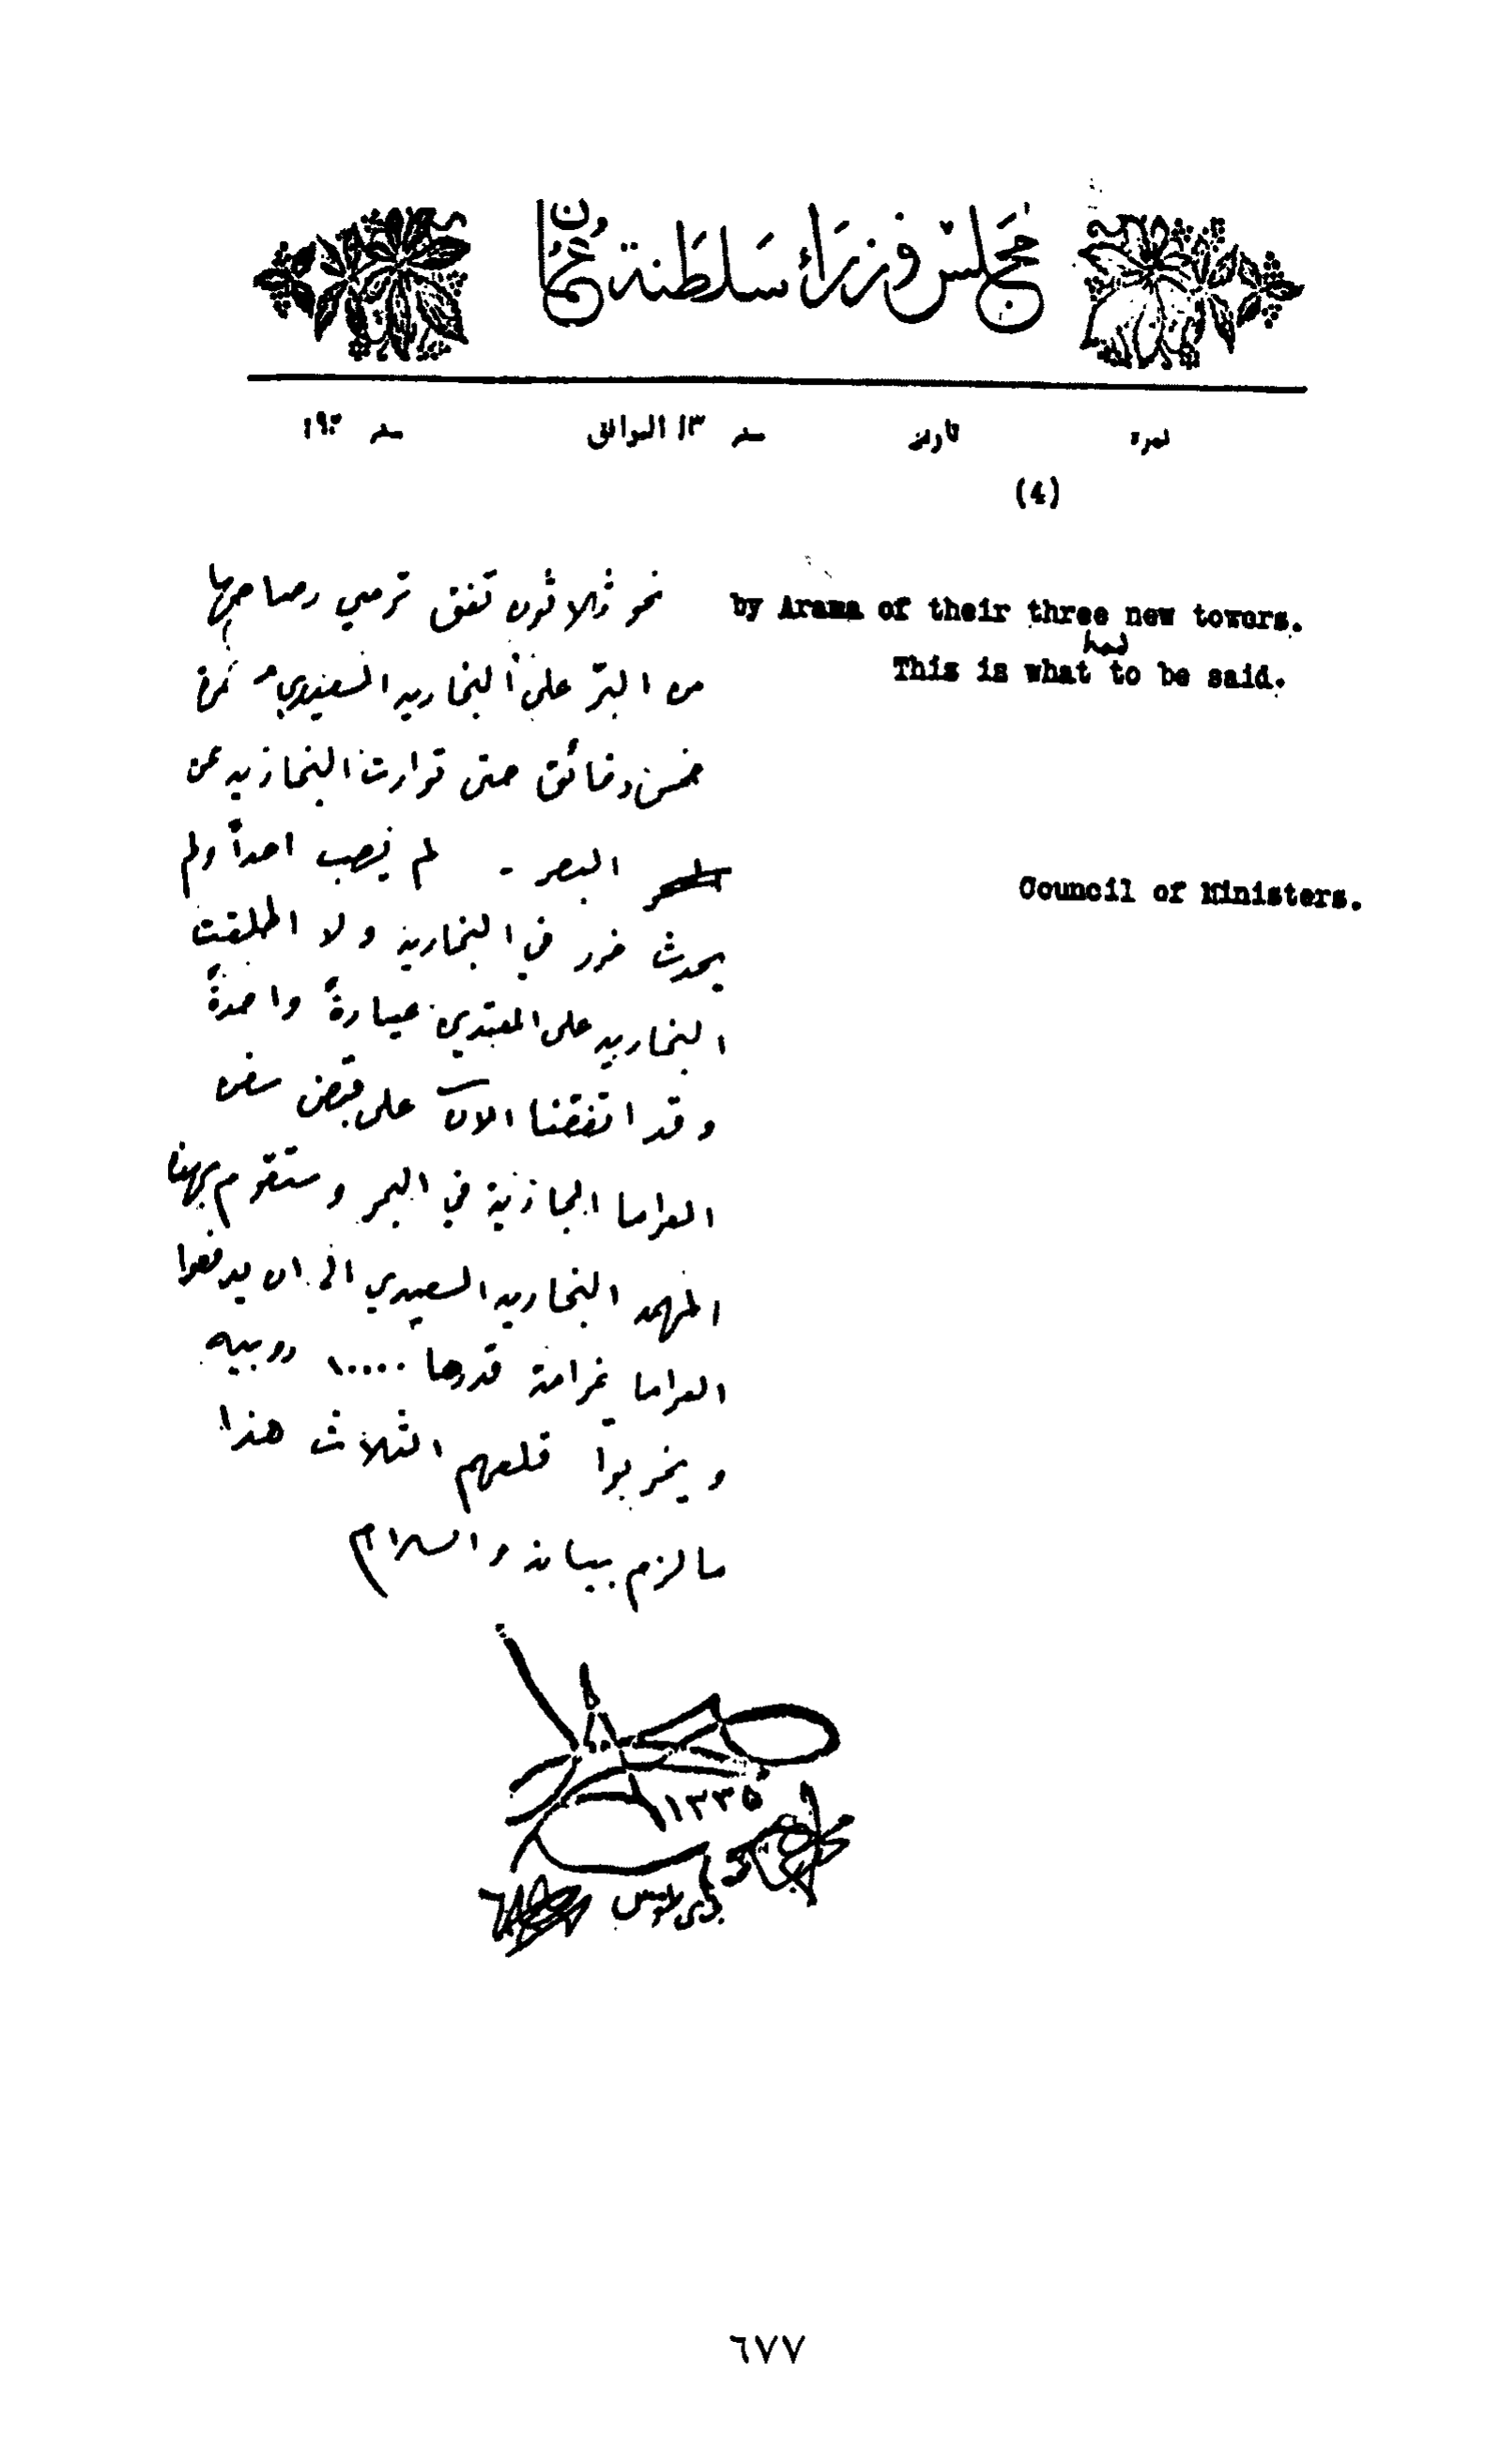 مجلس وزراء سلطنة عُمان
نمرة تاريخ سنة ١٣ الموافق سنة ١٩٢
(4)
by Arama of their three new towers.
had
This is what to be said.
Council of Ministers.
نحو ثلاثون تفق ترمي رصاصها
من البرّ على البخاريه السعيدي
خمس دقائق حتى توارت البخاريه عن
البصر - لم يُصِب احداً ولم
يحدث ضرر في البخاريه ولا اطلقت
البخاريه على المعتدين عيارةً واحدةً
وقد اتفقنا الآن على قبض سفن
العراما الجازية في البحر وستقوم بهذا
المهمه البخاريه السعيدي الى ان يدفعوا
العراما غرامة قدرها ١٠٠٠٠ روبيه
ويخربوا قلعهم الثلاث هذا
ما لزم بيانه والسلام
١٣٣٥
٦٧٧